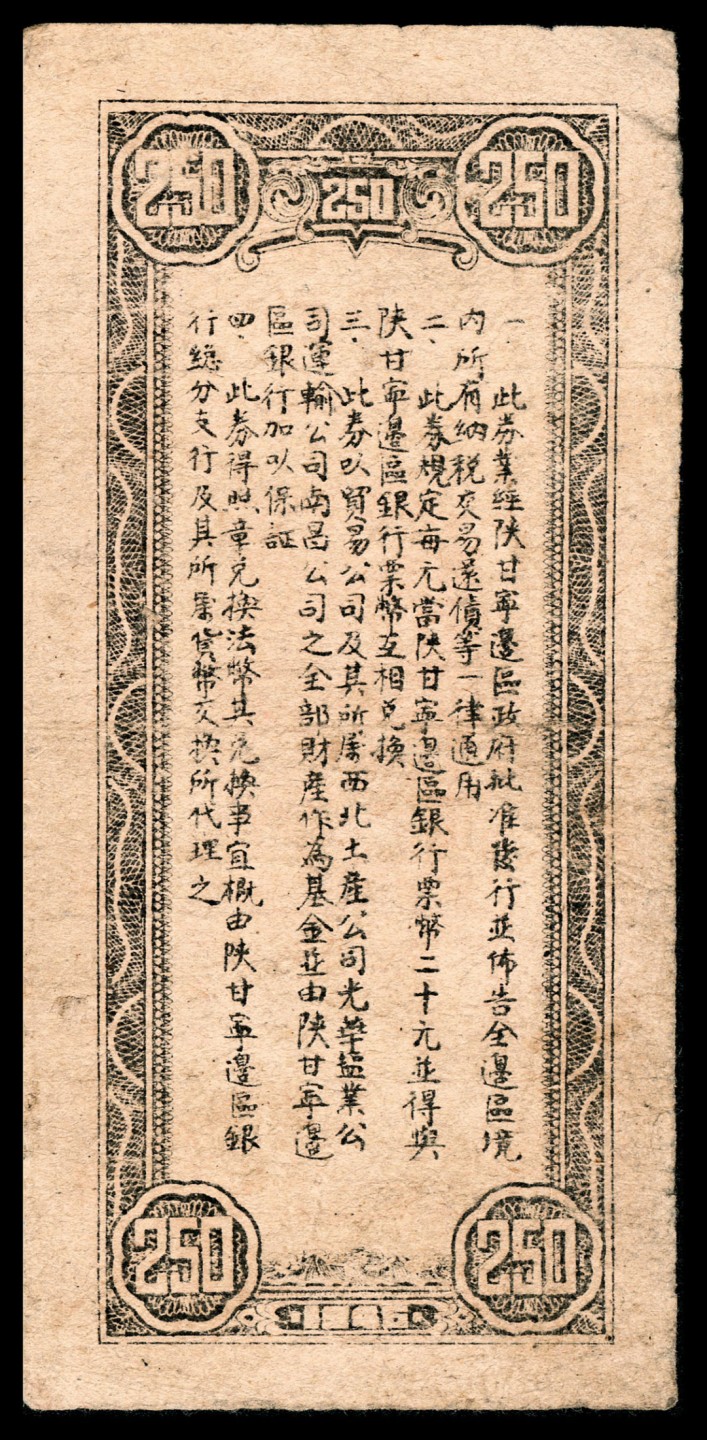 250
250
250
一、此券業經陕甘寧邊區政府批准發行並佈告全邊區境
内所有納税交易還債等一律通用
二、此券規定每元當陕甘寧邊區銀行票幣二十元並得與
陕甘寧邊區銀行票幣互相兑換
三、此券以貿易公司及其所屬西北土産公司光華鹽業公
司運輸公司南昌公司之全部財産作為基金並由陕甘寧邊
區銀行加以保証
四、此券得照章兑換法幣其兑換事宜概由陕甘寧邊區銀
行總分支行及其所屬貨幣交換所代理之
250
250